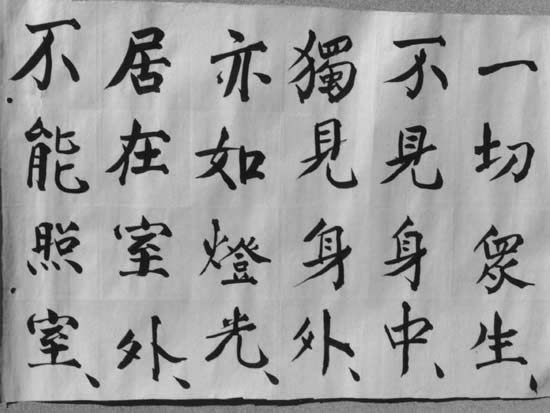 一切眾生、
不見身中、
獨見身外、
亦如燈光、
居在室外、
不能照室、